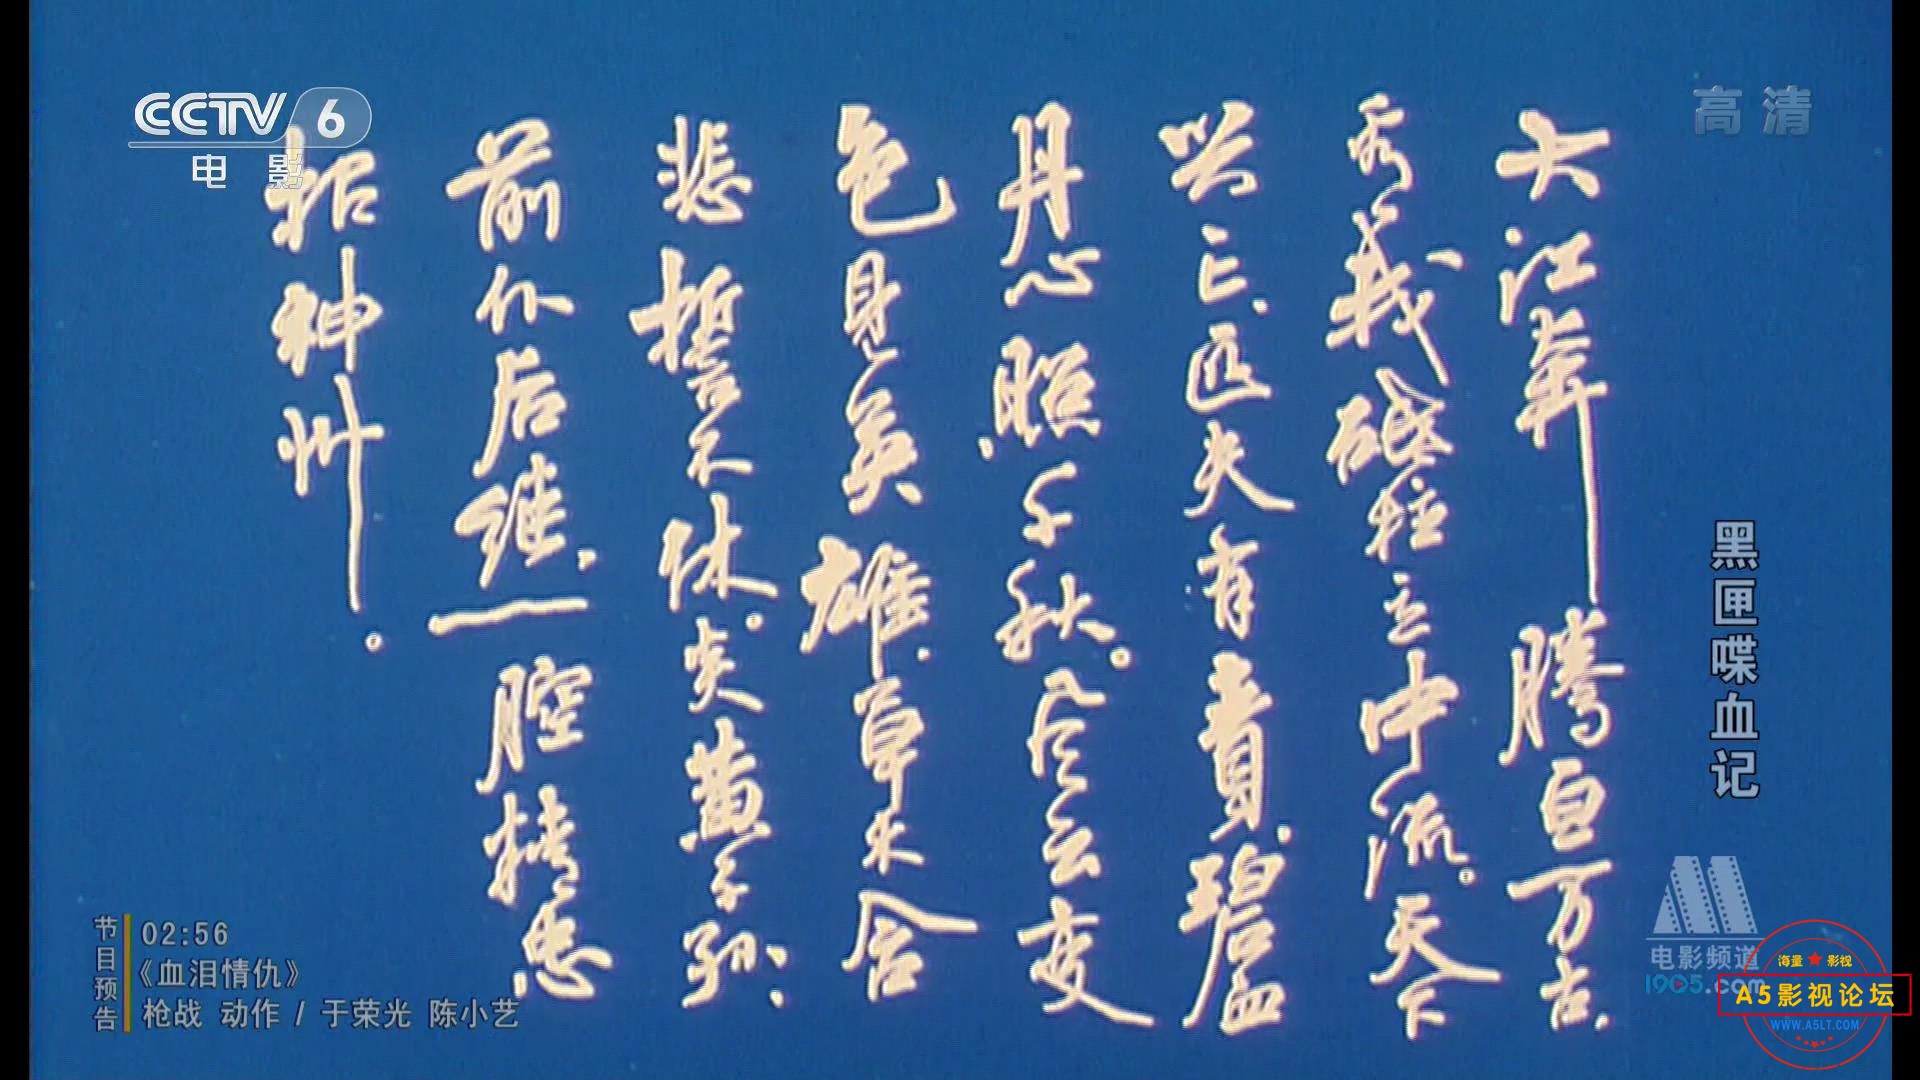 CCTV 6
电影
高清
大江奔腾亘万古,
看我砥柱立中流。天下
兴亡、匹夫有责,碧血
丹心,照千秋。风云变
色见英雄,草木含
悲誓不休。炎黄子孙,
前仆后继,一腔精忠
报神州。
黑匣喋血记
节目预告
02:56
《血泪情仇》
枪战 动作 / 于荣光 陈小艺
电影频道
1905.com
海量★影视
A5影视论坛
WWW.A5LT.COM